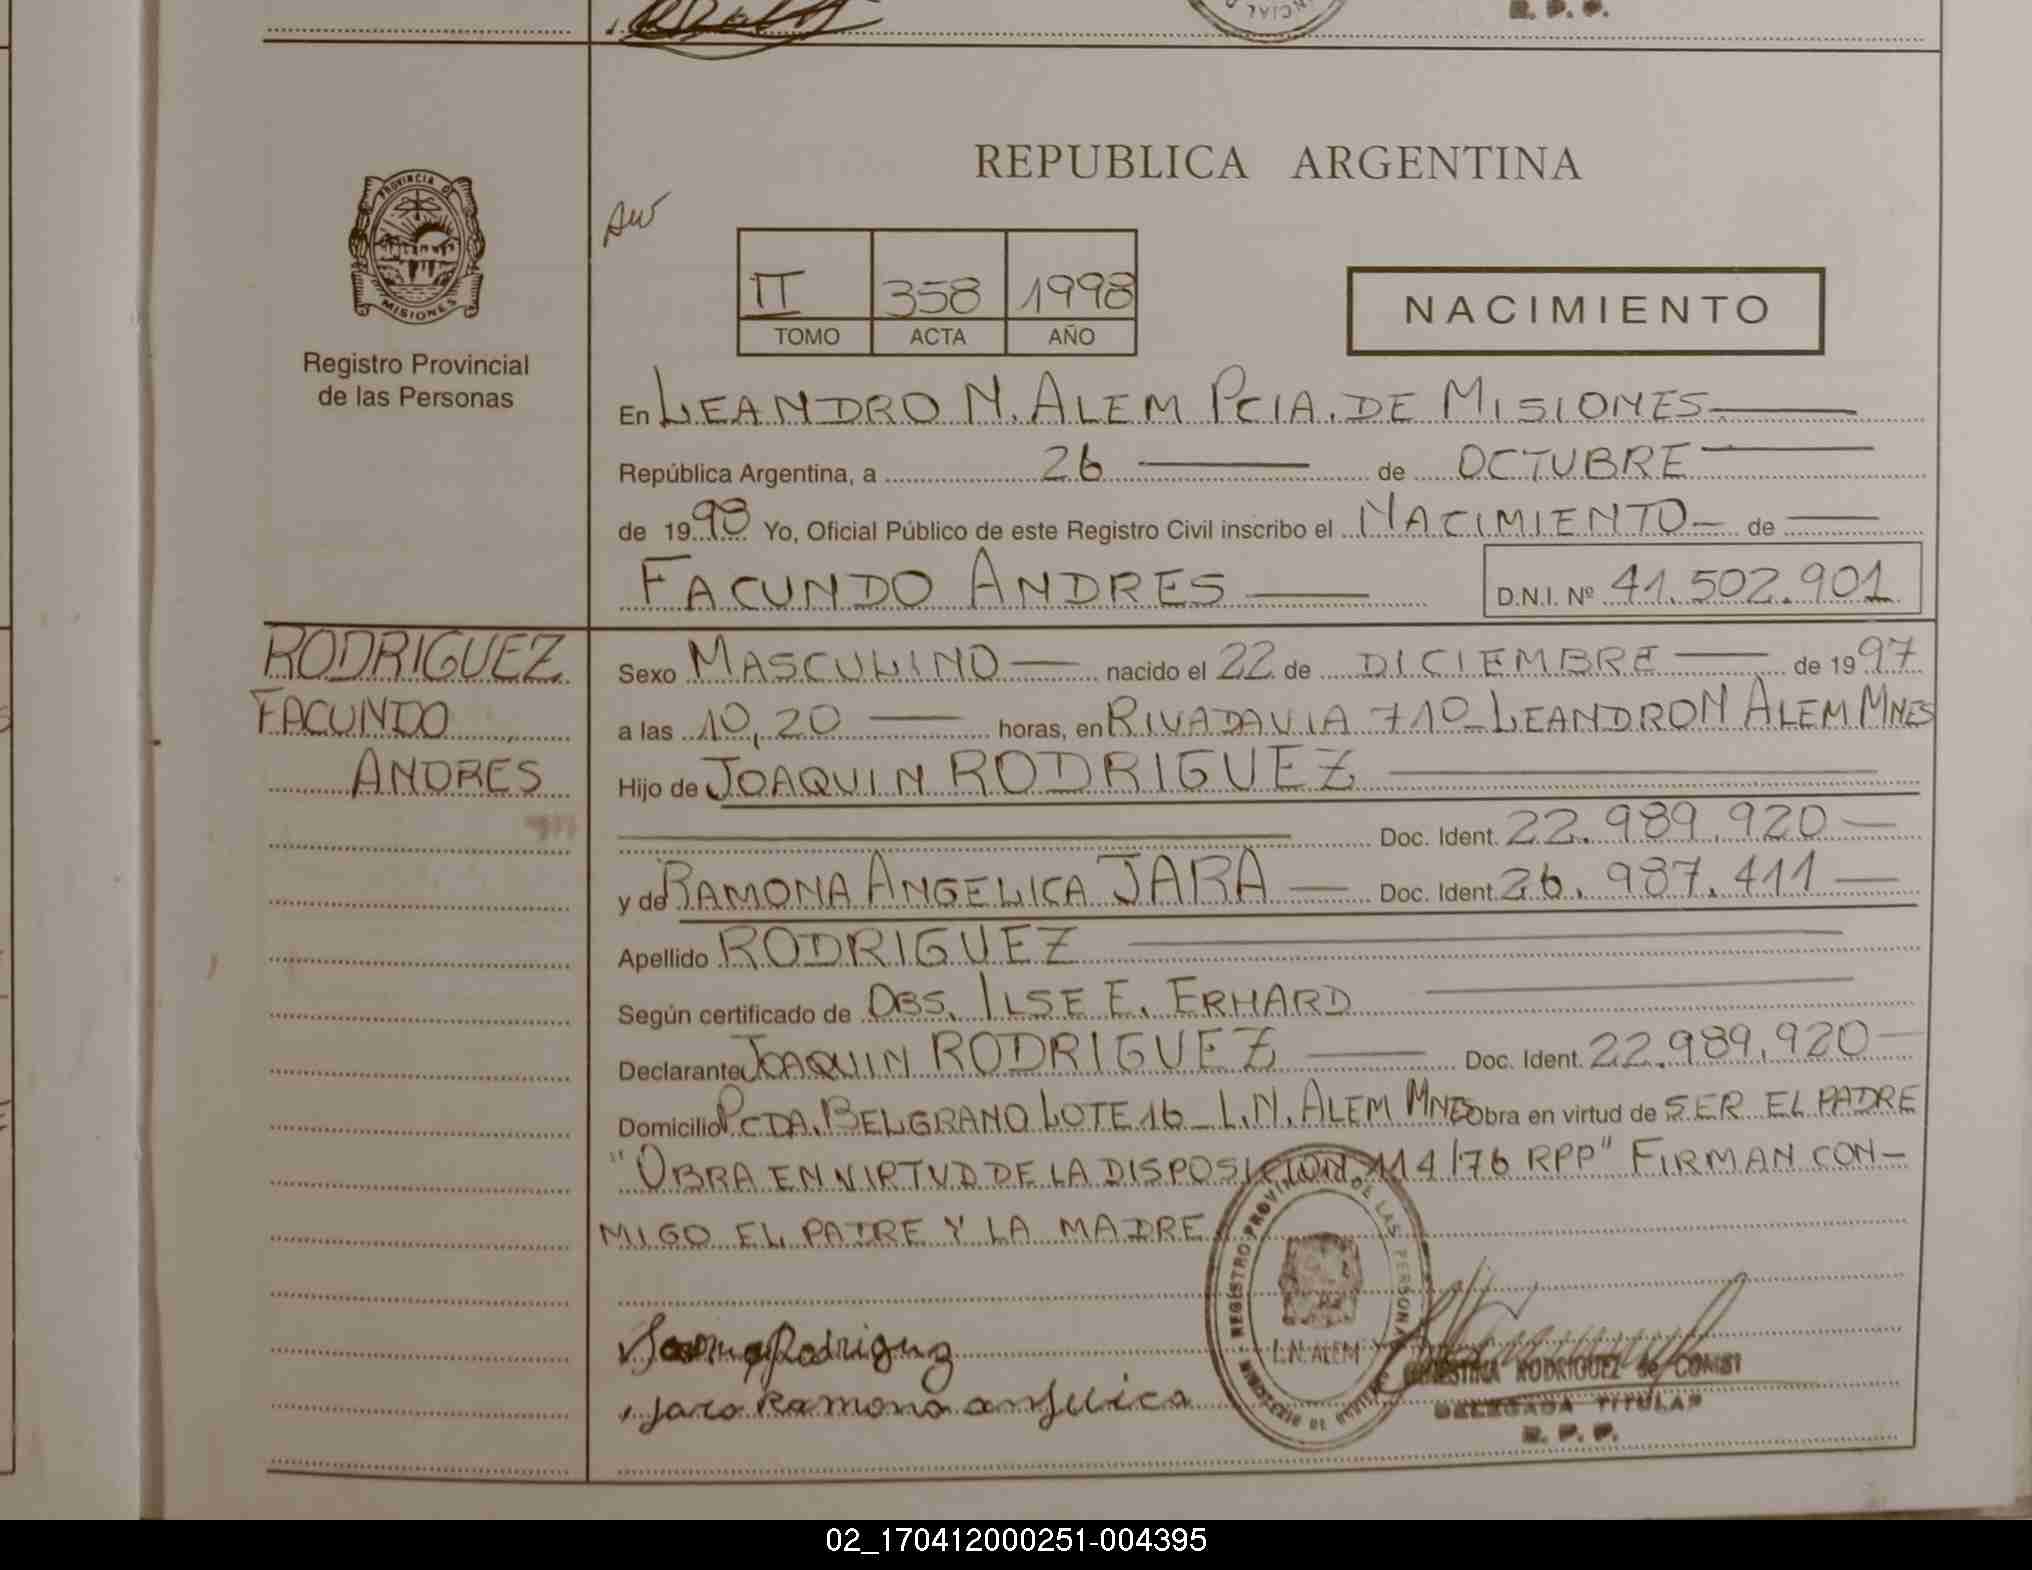 R. P. P.
REPUBLICA ARGENTINA
PROVINCIA DE
MISIONES
Registro Provincial
de las Personas
II 358 1998
TOMO ACTA AÑO
NACIMIENTO
En LEANDRO N. ALEM PCIA. DE MISIONES
República Argentina, a 26 de OCTUBRE
de 1998 Yo, Oficial Público de este Registro Civil inscribo el NACIMIENTO de
FACUNDO ANDRES D.N.I. Nº 41.502.901
RODRIGUEZ
FACUNDO
ANDRES
Sexo MASCULINO nacido el 22 de DICIEMBRE de 1997
a las 10,20 horas, en RIVADAVIA 710 - LEANDRO N ALEM MNES
Hijo de JOAQUIN RODRIGUEZ
Doc. Ident. 22.989.920
y de RAMONA ANGELICA JARA Doc. Ident. 26.987.411
Apellido RODRIGUEZ
Según certificado de OBS. ILSE E. ERHARD
Declarante JOAQUIN RODRIGUEZ Doc. Ident. 22.989.920
Domicilio PCDA. BELGRANO LOTE 16 - L.N. ALEM MNES Obra en virtud de SER EL PADRE
"OBRA EN VIRTUD DE LA DISPOSICION 114/76 RPP" FIRMAN CON-
MIGO EL PADRE Y LA MADRE
REGISTRO PROVINCIAL DE LAS PERSONAS
L.N. ALEM
Rodriguez
Jara Ramona angelica
RODRIGUEZ de
DELEGADA TITULAR
R. P. P.
02_170412000251-004395